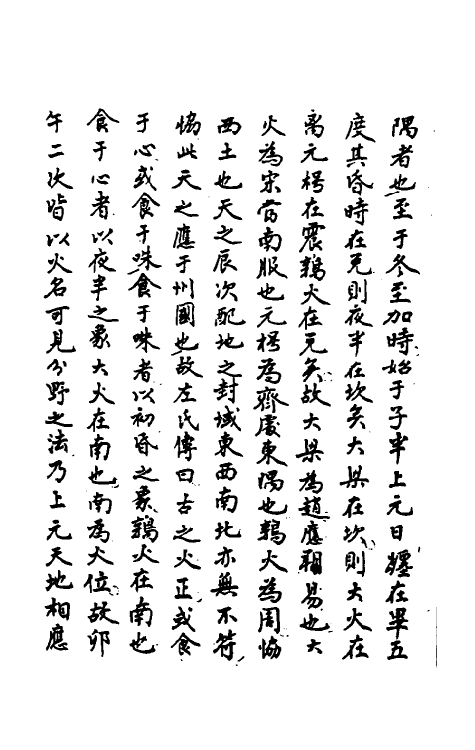 隅者也至于冬至加時始于子半上元日躔在畢五
度其昏時在兌則夜半在坎矣大梁在坎則大火在
离元枵在震鶉火在兌矣故大梁為趙應朔易也大
火為宋當南服也元枵為齊處東隅也鶉火為周協
西土也天之辰次配地之封域東西南北亦無不符
恊此天之應于州國也故左氏傳曰古之火正或食
于心或食于咮食于咮者以初昏之象鶉火在南也
食于心者以夜半之象大火在南也南為火位故卯
午二次皆以火名可見分野之法乃上元天地相應